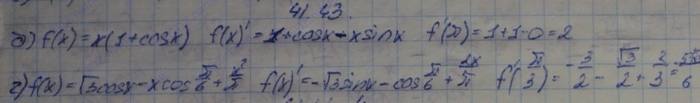 41.43.
д) f(x) = x(1+cosx) f(x)' = 1+cosx - x sinx f'(π) = 1+1-0 = 2
г) f(x) = √3cosx - x cos π/6 + x²/π f(x)' = -√3 sinx - cos π/6 + 2x/π f'(π/3) = -3/2 - √3/2 + 2/3 =